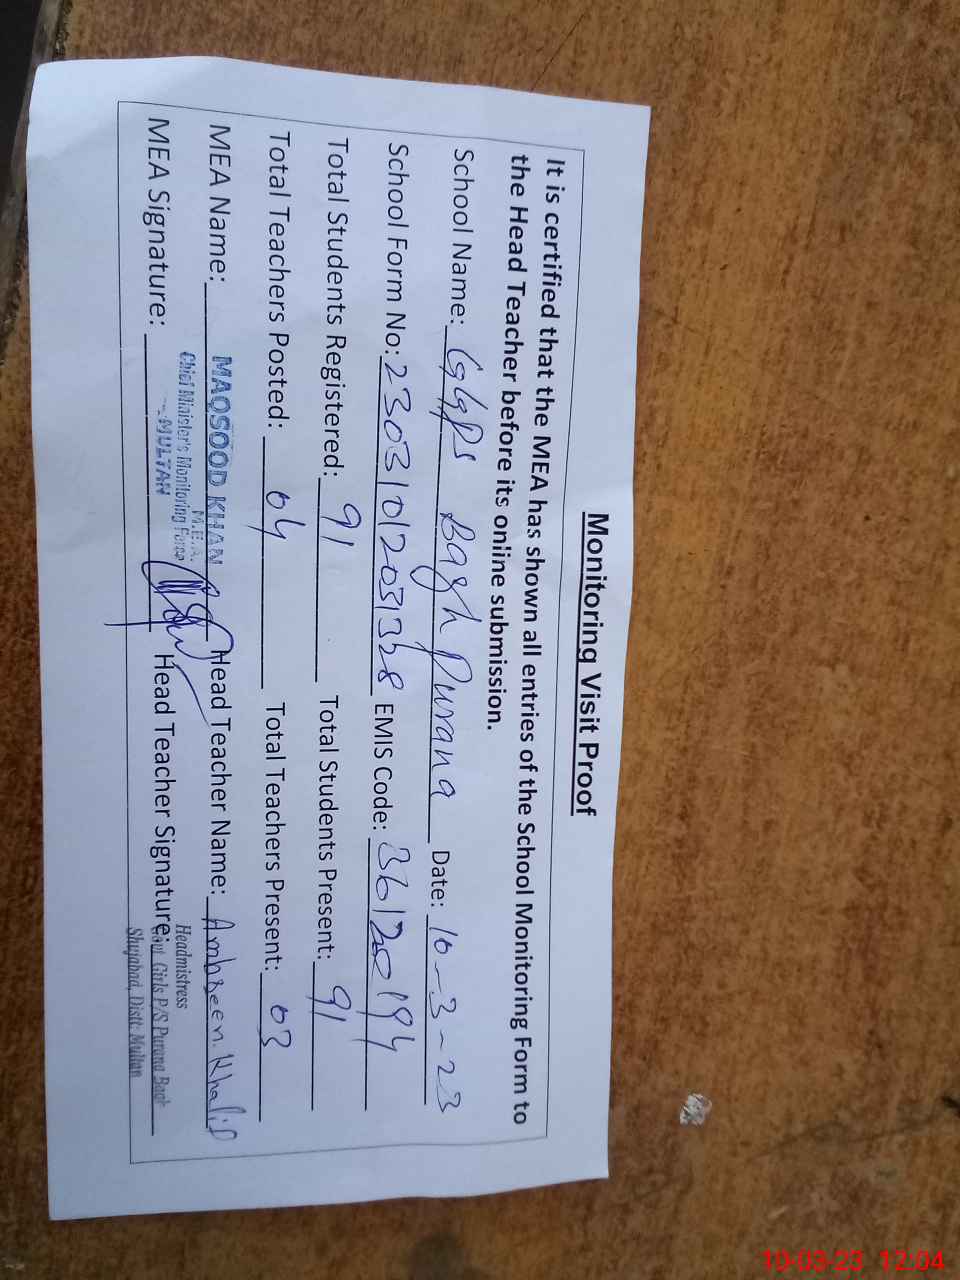 Monitoring Visit Proof
It is certified that the MEA has shown all entries of the School Monitoring Form to
the Head Teacher before its online submission.
School Name: GGPS Bagh Purana Date: 10-3-23
School Form No: 23031012031328 EMIS Code: 36120194
Total Students Registered: 91 Total Students Present: 91
Total Teachers Posted: 04 Total Teachers Present: 03
MEA Name: MAQSOOD KHAN Head Teacher Name: Ambreen Khalid
M.E.A.
Chief Minister's Monitoring Force
MULTAN
MEA Signature: Head Teacher Signature:
Headmistress
Govt Girls P/S Purana Bagh
Shujabad, Distt: Multan
10-03-23 12:04